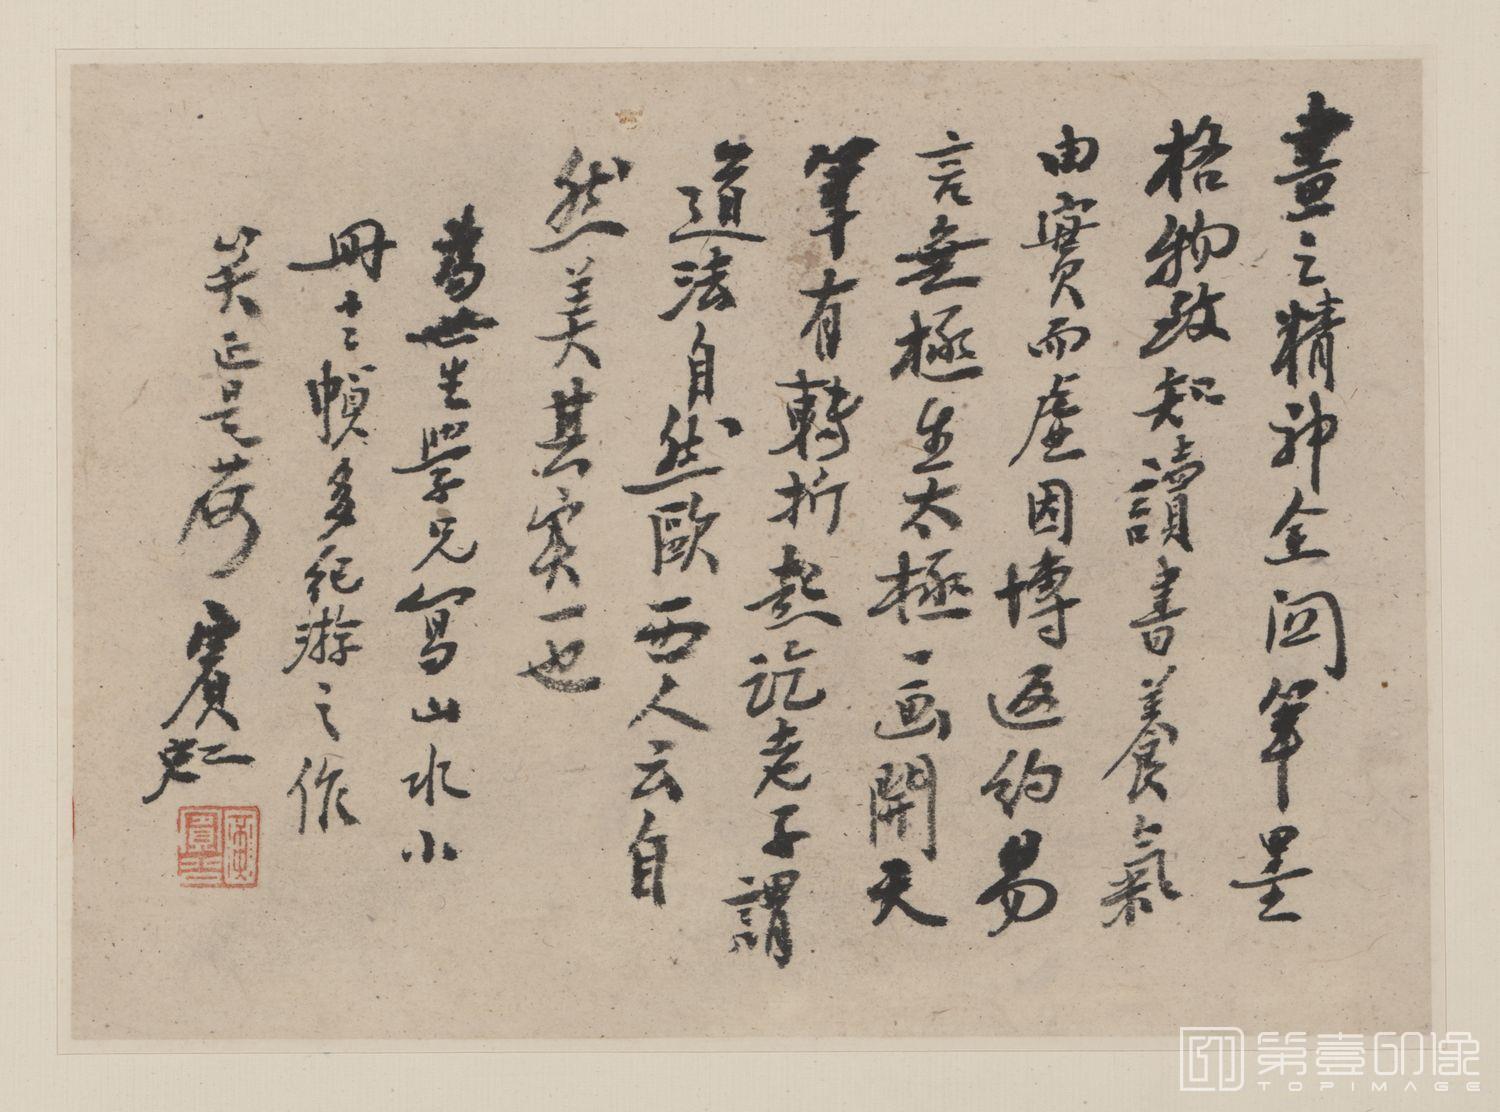 畫之精神全関筆墨
格物致知讀書養氣
由實而虛因博返約易
言無極生太極一画開天
筆有轉折起訖老子謂
道法自然歐西人云自
然美其實一也
蒼世生學兄寫山水小
冊十二幀多紀游之作
笑正是荷 賓虹
第壹印像
TOPIMAGE